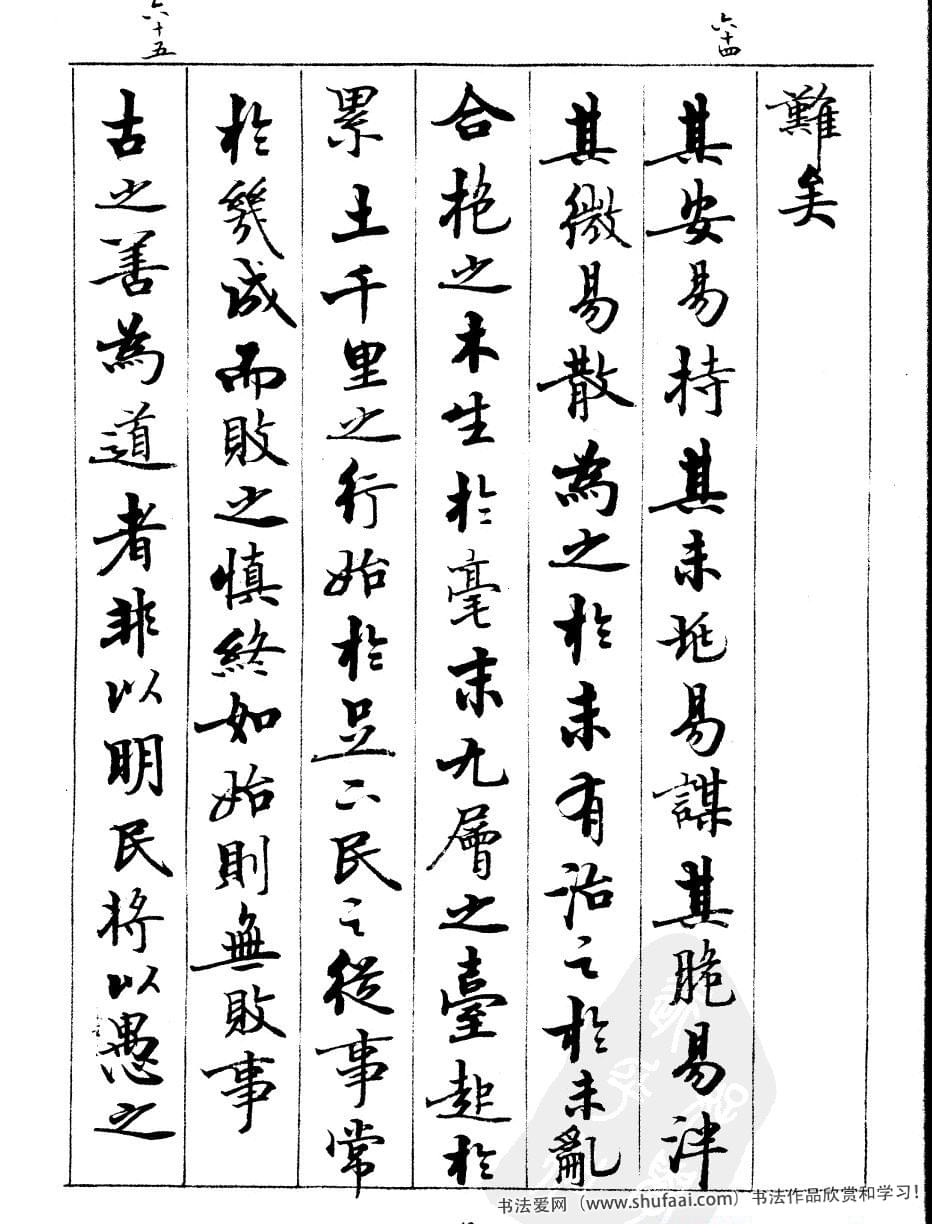 六十四
難矣
其安易持其未兆易謀其脆易泮
其微易散為之於未有治之於未亂
合抱之木生於毫末九層之臺起於
累土千里之行始於足下民之從事常
於幾誠而敗之慎終如始則無敗事
六十五
古之善為道者非以明民將以愚之
书法爱网（www.shufaai.com）书法作品欣赏和学习！